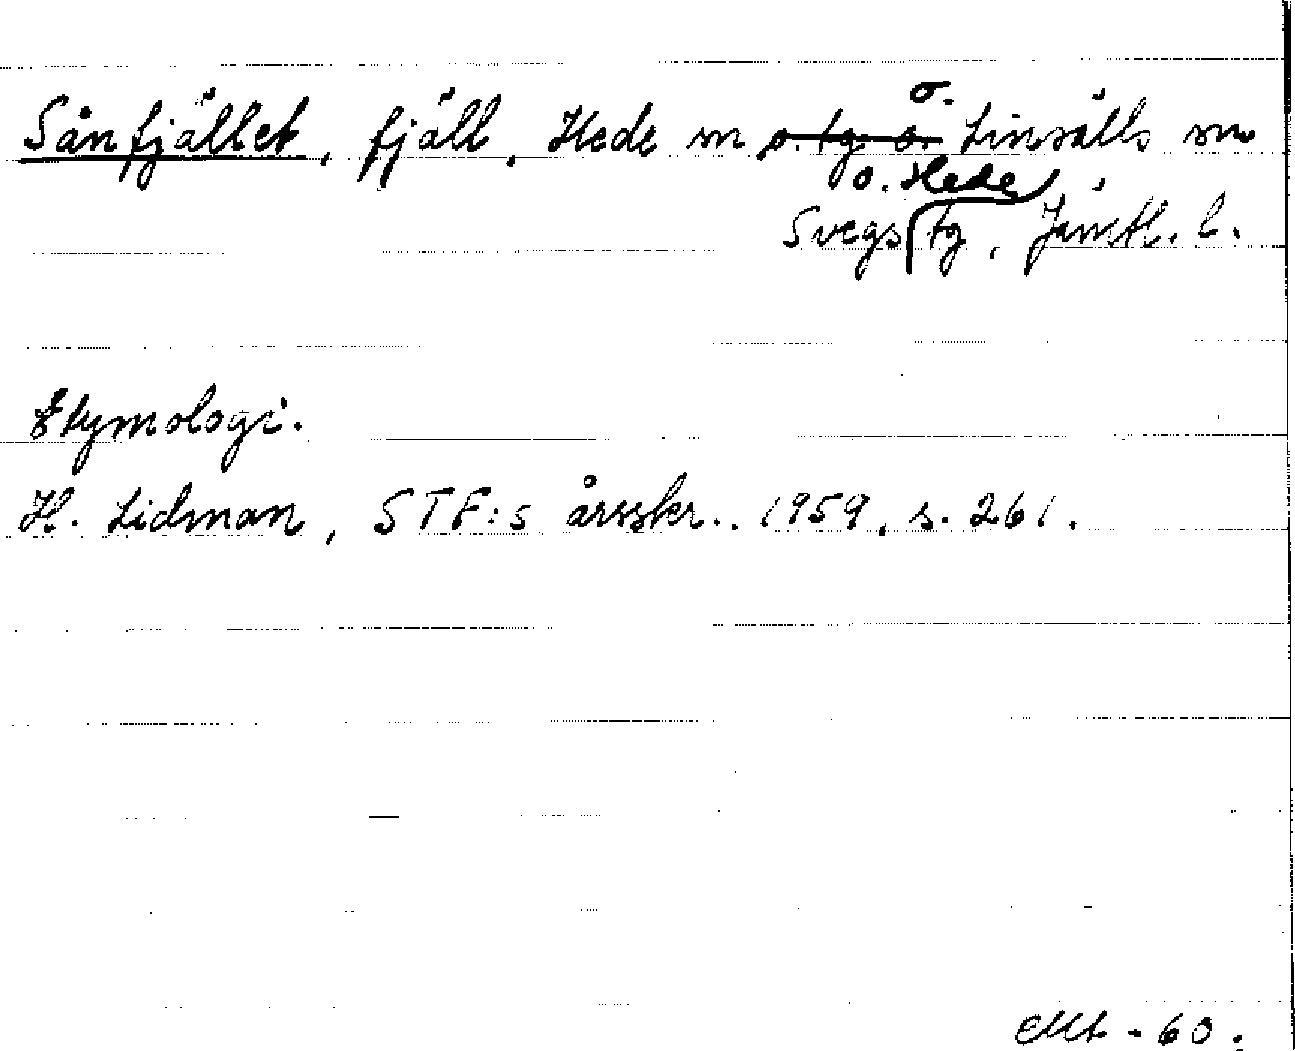 Sånfjället, fjäll, Hede sn o. tg o. o. Linsälls sn
o. Hede
Svegs tg, Jämtl. l.
Etymologi.
H. Lidman, STF:s årsskr.. 1959, s. 261.
-60.